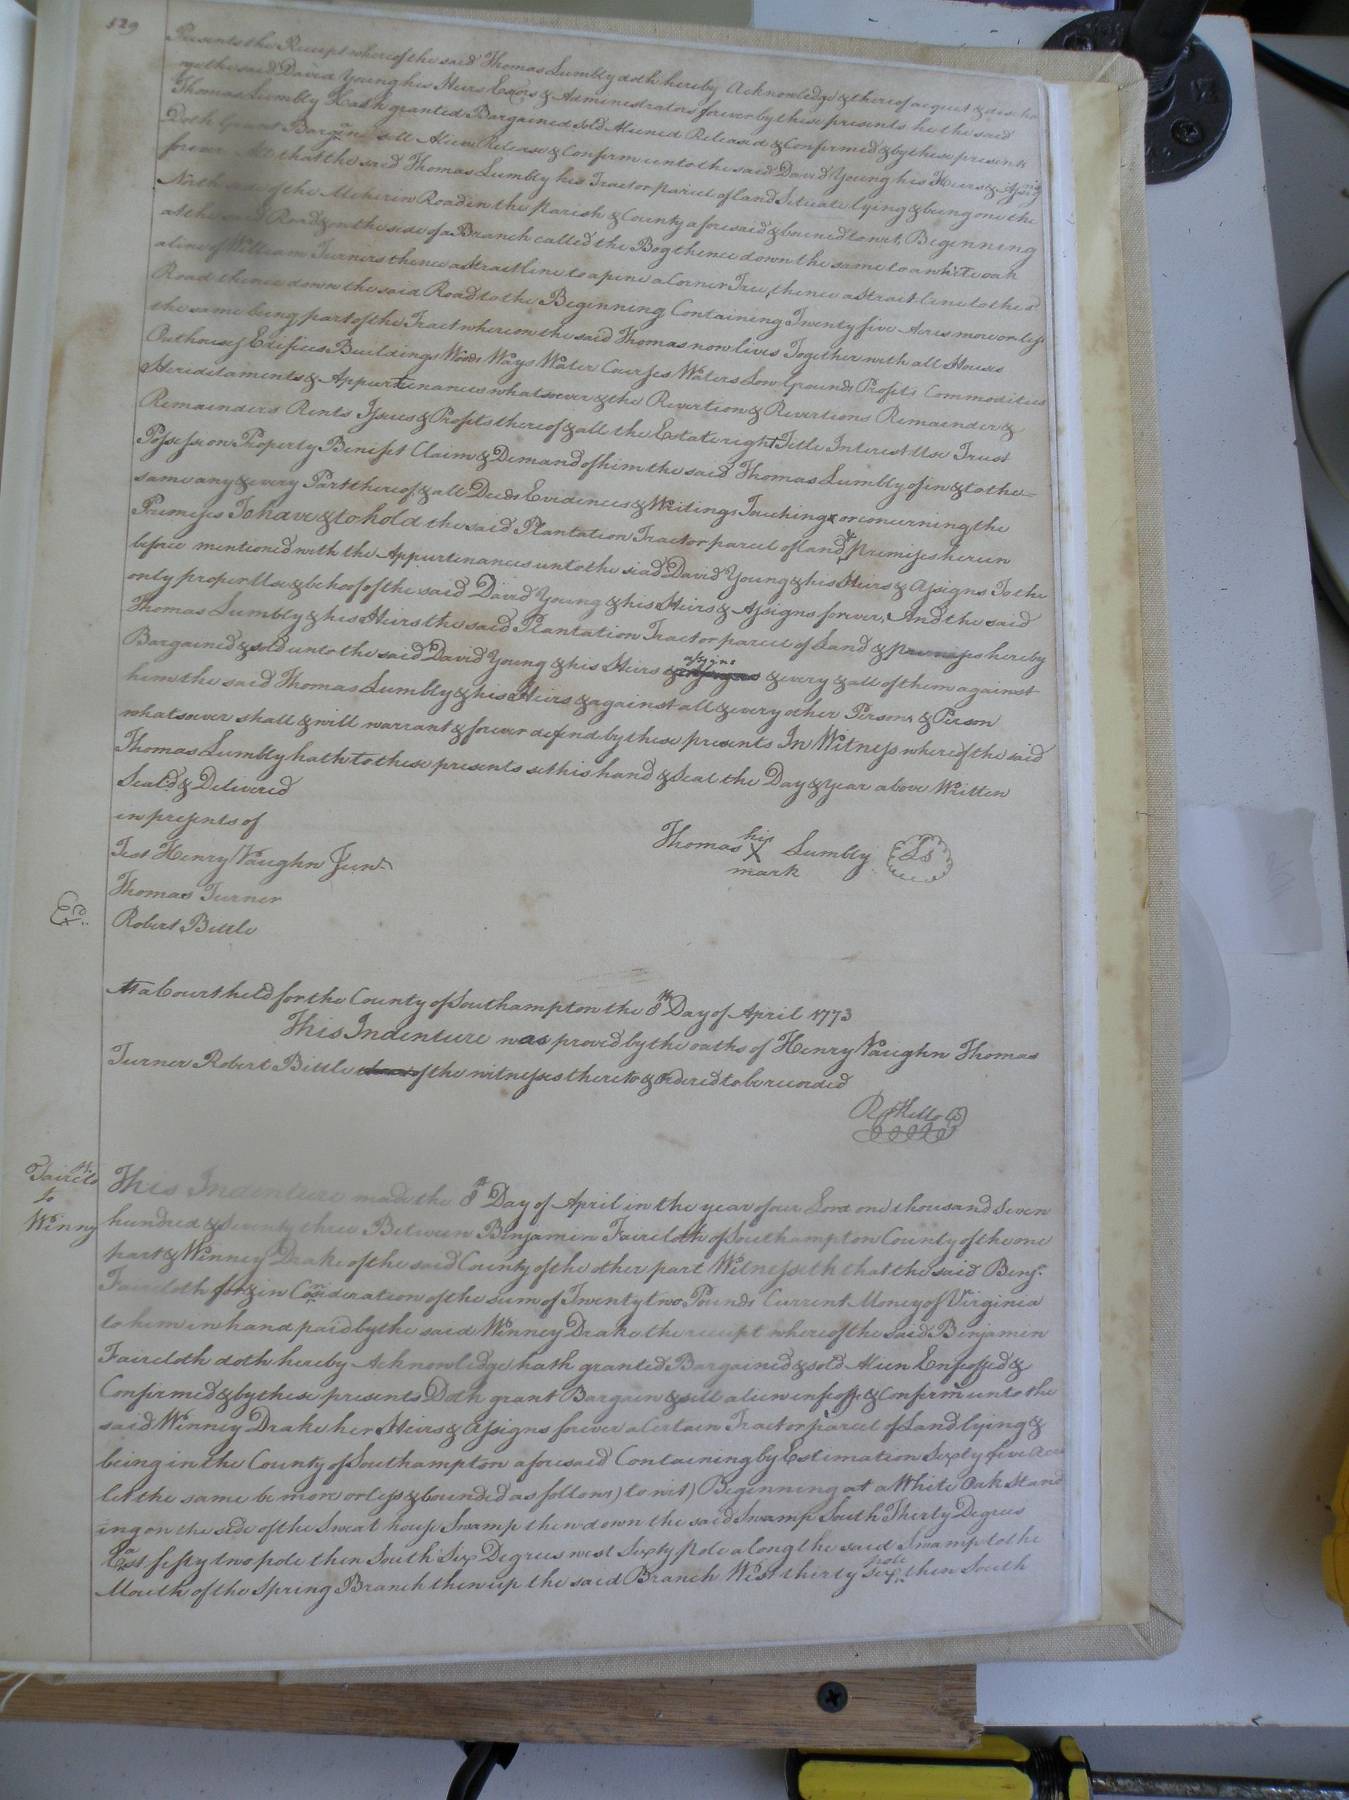 529
Presents the Receipt whereof the said Thomas Lumbly doth hereby Acknowledge & thereof acquit & discha
me the said David Young his Heirs Exōrs & Administrators forever by these presents he the said
Thomas Lumbly Hath granted Bargained Sold Aliened Released & Confirmed & by these presents
Doth Grant Bargin sell Alien Release & Confirm unto the said David Young his Heirs & Assigns
forever All that the said Thomas Lumbly his Tract or parcel of land Situate lying & being one the
North side of the Meherrin Road in the Parish & County aforesaid & bouned to wit, Beginning
at the said Road & on the side of a Branch called the Bog thence down the same to a white oak
a line of William Turners thence a Strait line to a pine a Corner Tree, thence a Strait line to the sd
Road thence down the said Road to the Beginning Containing Twenty five Acres more or less
the same being part of the Tract whereon the said Thomas now lives Together with all Houses
Outhouses Edifices Buildings Woods Ways Water Courses Waters Low Grounds Profits Commodities
Hereditaments & Appurtinances whatsoever & the Revertion & Revertions Remainder &
Remainders Rents Issues & Profits thereof & all the Estate right Title Interest Use Trust
Possession Property Benefit Claim & Demand of him the said Thomas Lumbly of in & to the
same any & every Part thereof & all Deeds Evidences & Writings Touching or concerning the
Premises To have & to hold the said Plantation Tract or parcel of land & premises herein
before mentioned with the Appurtinances unto the siad David Young & his Heirs & Assigns To the
only proper Use & behoof of the said David Young & his Heirs & Assigns forever, And the said
Thomas Lumbly & his Heirs the said Plantation Tract or parcel of Land & premises hereby
Bargained & sold unto the said David Young & his Heirs & assigns & every & all of them against
him the said Thomas Lumbly & his Heirs & against all & every other Persons & Person
whatsoever shall & will warrant & forever defend by these presents In Witness whereof the said
Thomas Lumbly hath to these presents set his hand & Seal the Day & year above Written
Seal'd & Delivered
in presents of
Test Henry Vaughn Junr
Thomas his X mark Lumbly Ls
Thomas Turner
Exd
Robert Bittle
At a Court held for the County of Southampton the 8th Day of April 1773
This Indenture was proved by the oaths of Henry Vaughn Thomas
Turner Robert Bittle of the witnesses thereto & ordered to be recorded
Rd Kello C
Faircloth
to
Winny
This Indenture made the 8th Day of April in the year of our Lord one thousand Seven
hundred & Seventy three Between Binjamin Faircloth of Southampton County of the one
part & Winney Drake of the said County of the other part Witnesseth that the said Benj.
Faircloth for & in Consideration of the sum of Twenty two Pounds Current Money of Virginia
to him in hand paid by the said Winney Drake the receipt whereof the said Binjamin
Faircloth doth hereby Acknowledge hath granted Bargained & sold Alien Enfeoffed &
Confirmed & by these presents Doth grant Bargain & sell alien infeoff & Confirm unto the
said Winney Drake her Heirs & Assigns forever a Certain Tract or parcel of Land lying &
being in the County of Southampton aforesaid Containing by Estimation Sixty five Acres
let the same be more or less & bounded as follows) to wit) Beginning at a White Oak Stand
ing on the side of the Sweat house Swamp then down the said Swamp South Thirty Degrees
East fifty two pole then South Six Degrees west Sixty pole along the said Swamp to the
Mouth of the Spring Branch then up the said Branch West thirty six pole then South